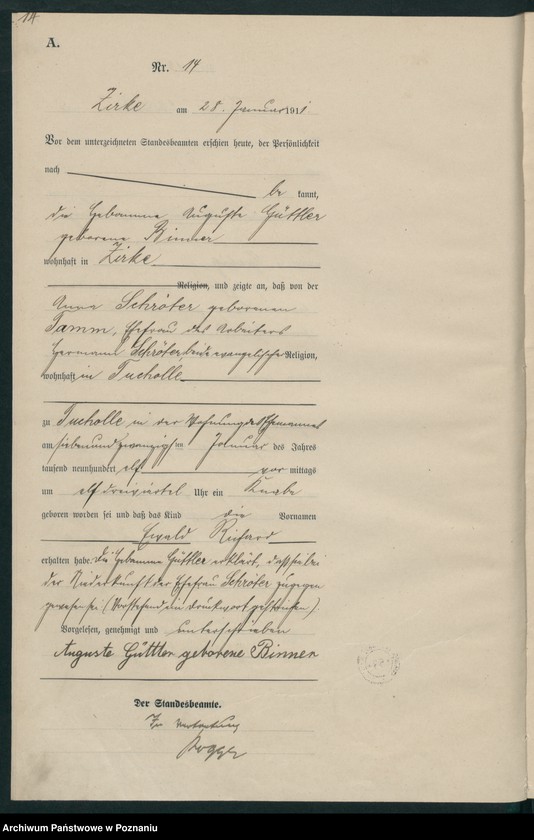 14
A.
Nr. 14
Zirke am 28. Januar 1911
Vor dem unterzeichneten Standesbeamten erschien heute, der Persönlichkeit
nach
be kannt,
die Hebamme Auguste Güttler
geborene Binner
wohnhaft in Zirke
Religion, und zeigte an, daß von der
Anna Schröter geborenen
Tamm, Ehefrau des Arbeiters
Hermann Schröter beide evangelischer Religion,
wohnhaft in Tucholle
zu Tucholle in der Wohnung des Ehemannes
am siebenundzwanzigsten Januar des Jahres
tausend neunhundert elf vor mittags
um elf dreiviertel Uhr ein Knabe
geboren worden sei und daß das Kind die Vornamen
Ewald Richard
erhalten habe. Die Hebamme Güttler erklärt, daß sie bei
der Niederkunft der Ehefrau Schröter zugegen
gewesen sei. (Vorstehend ein Druckwort gestrichen)
Vorgelesen, genehmigt und unterschrieben
Auguste Güttler geborene Binner
Der Standesbeamte.
In Vertretung
Archiwum Państwowe w Poznaniu